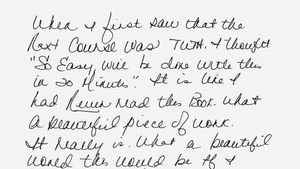 When I first saw that the
Next Course was TWH. I thought
"So Easy, will be done with this
in 20 minutes". It is like I
had Never read this Book. What
a beautiful piece of work.
It Really is. What a beautiful
world this would be If I